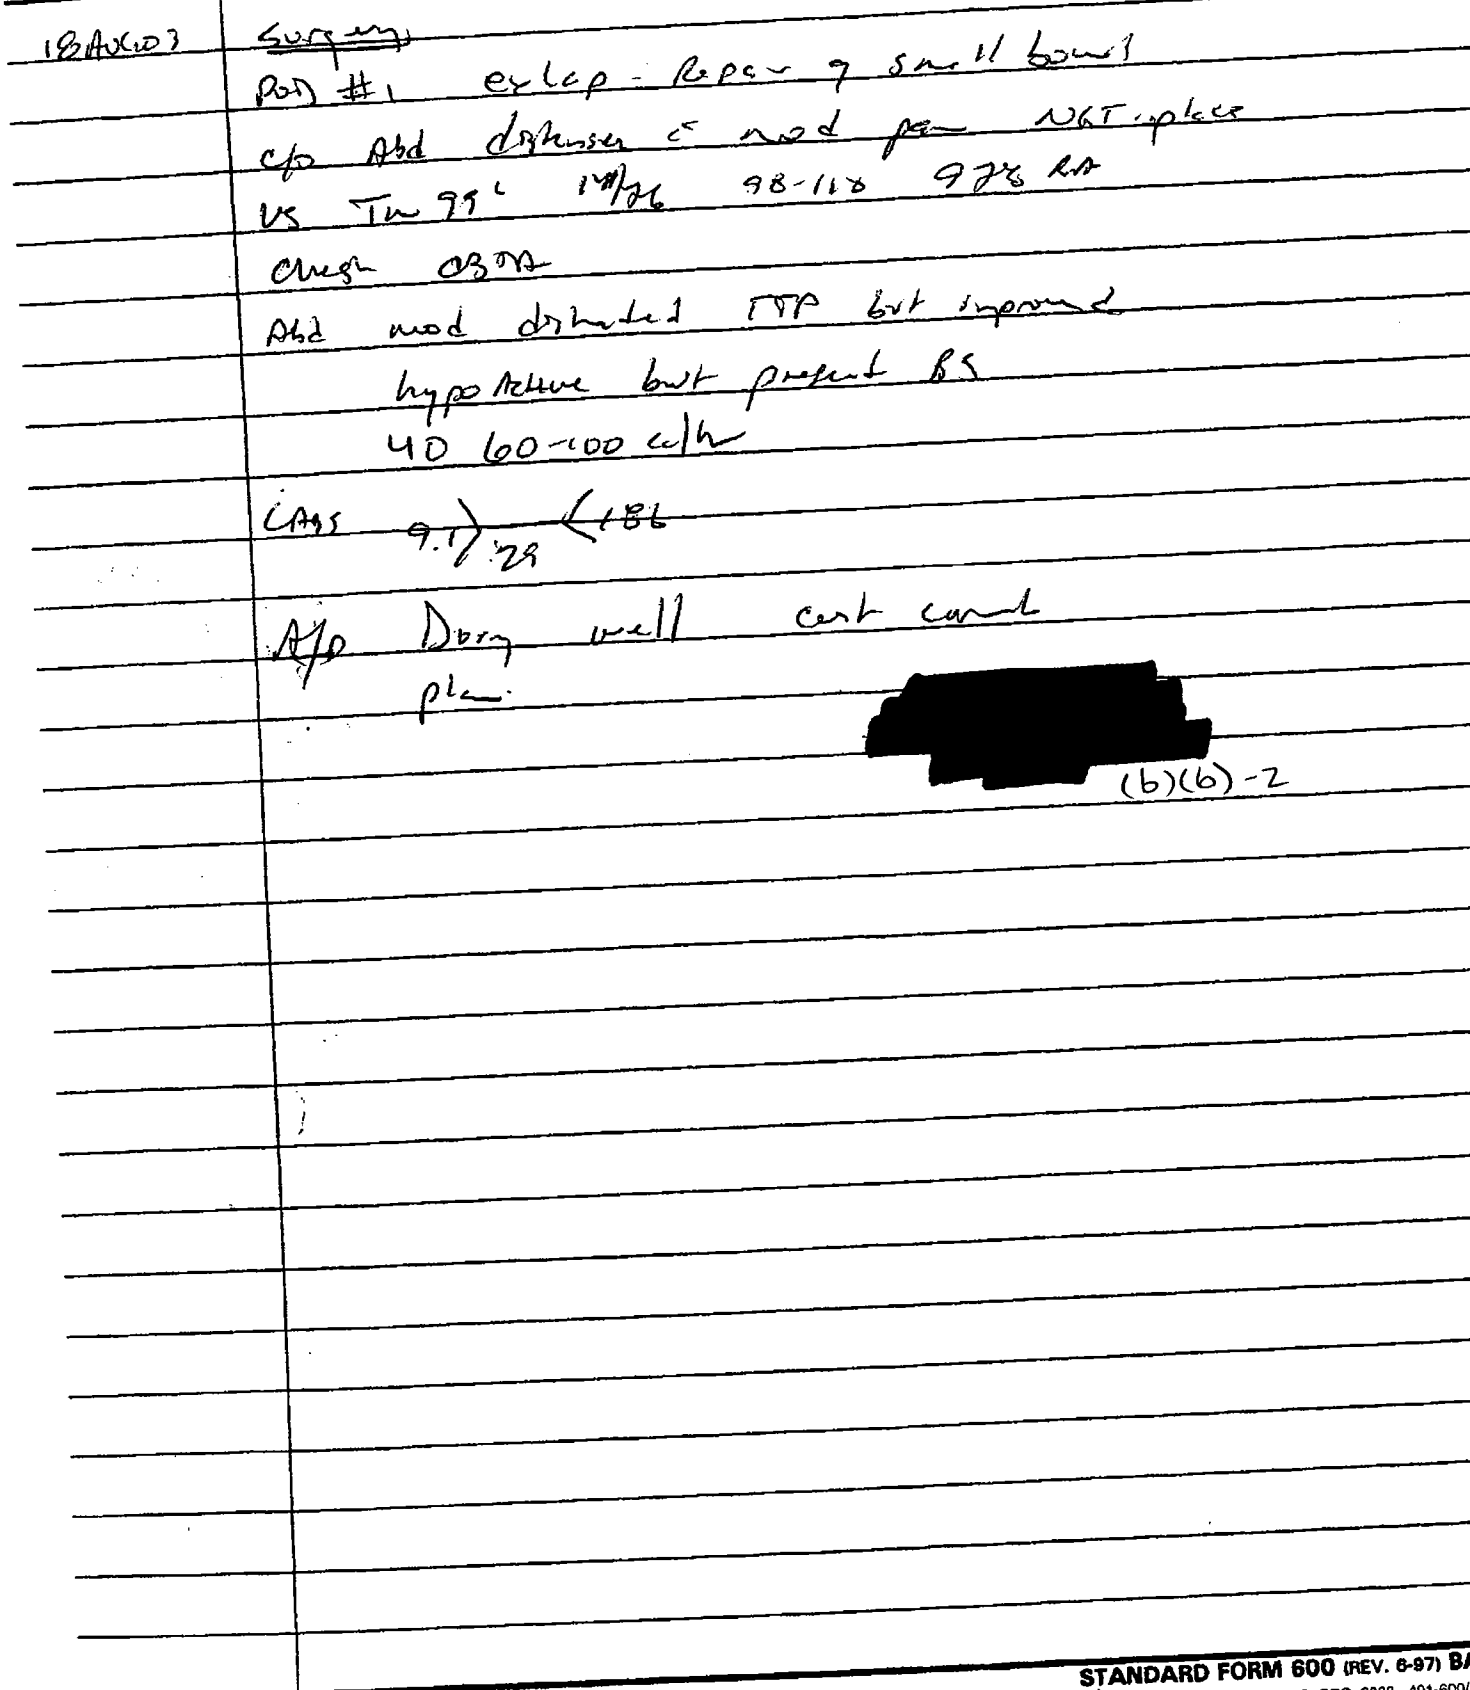 18 AUG 03 Surgery
POD #1 exlap - Repair of small bowel
c/o Abd distension c̄ mod pain NGT in place
VS Tm 99 98-118 97% RA
Chest CBTA
Abd mod distended TTP but improved
hypoactive but present BS
UO 60-100 cc/hr
Labs 9.1 29 186
A/P Doing well cont current
plan.
(b)(6)-2
STANDARD FORM 600 (REV. 6-97) BA